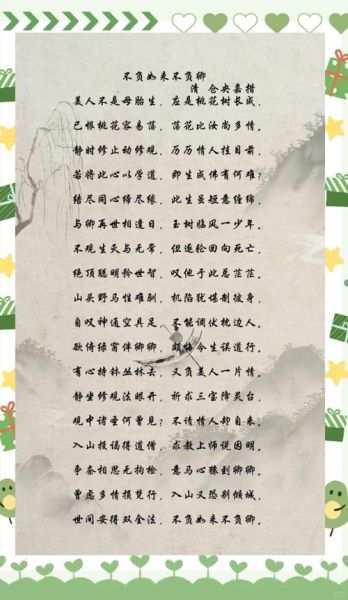 不负如来不负卿
清 仓央嘉措
美人不是母胎生，应是桃花树长成，
已恨桃花容易落，落花比汝尚多情。
静时修止动修观，历历情人挂目前，
若将此心以学道，即生成佛有何难？
结尽同心缔尽缘，此生虽短意缠绵，
与卿再世相逢日，玉树临风一少年。
不观生灭与无常，但逐轮回向死亡，
绝顶聪明矜世智，叹他于此总茫茫。
山头野马性难驯，机陷犹堪制彼身，
自叹神通空具足，不能调伏枕边人。
欲倚绿窗伴卿卿，颇悔今生误道行。
有心持钵丛林去，又负美人一片情。
静坐修观法眼开，祈求三宝降灵台，
观中诸圣何曾见？不请情人却自来。
入山投谒得道僧，求教上师说因明。
争奈相思无拘检，意马心猿到卿卿。
曾虑多情损梵行，入山又恐别倾城，
世间安得双全法，不负如来不负卿。